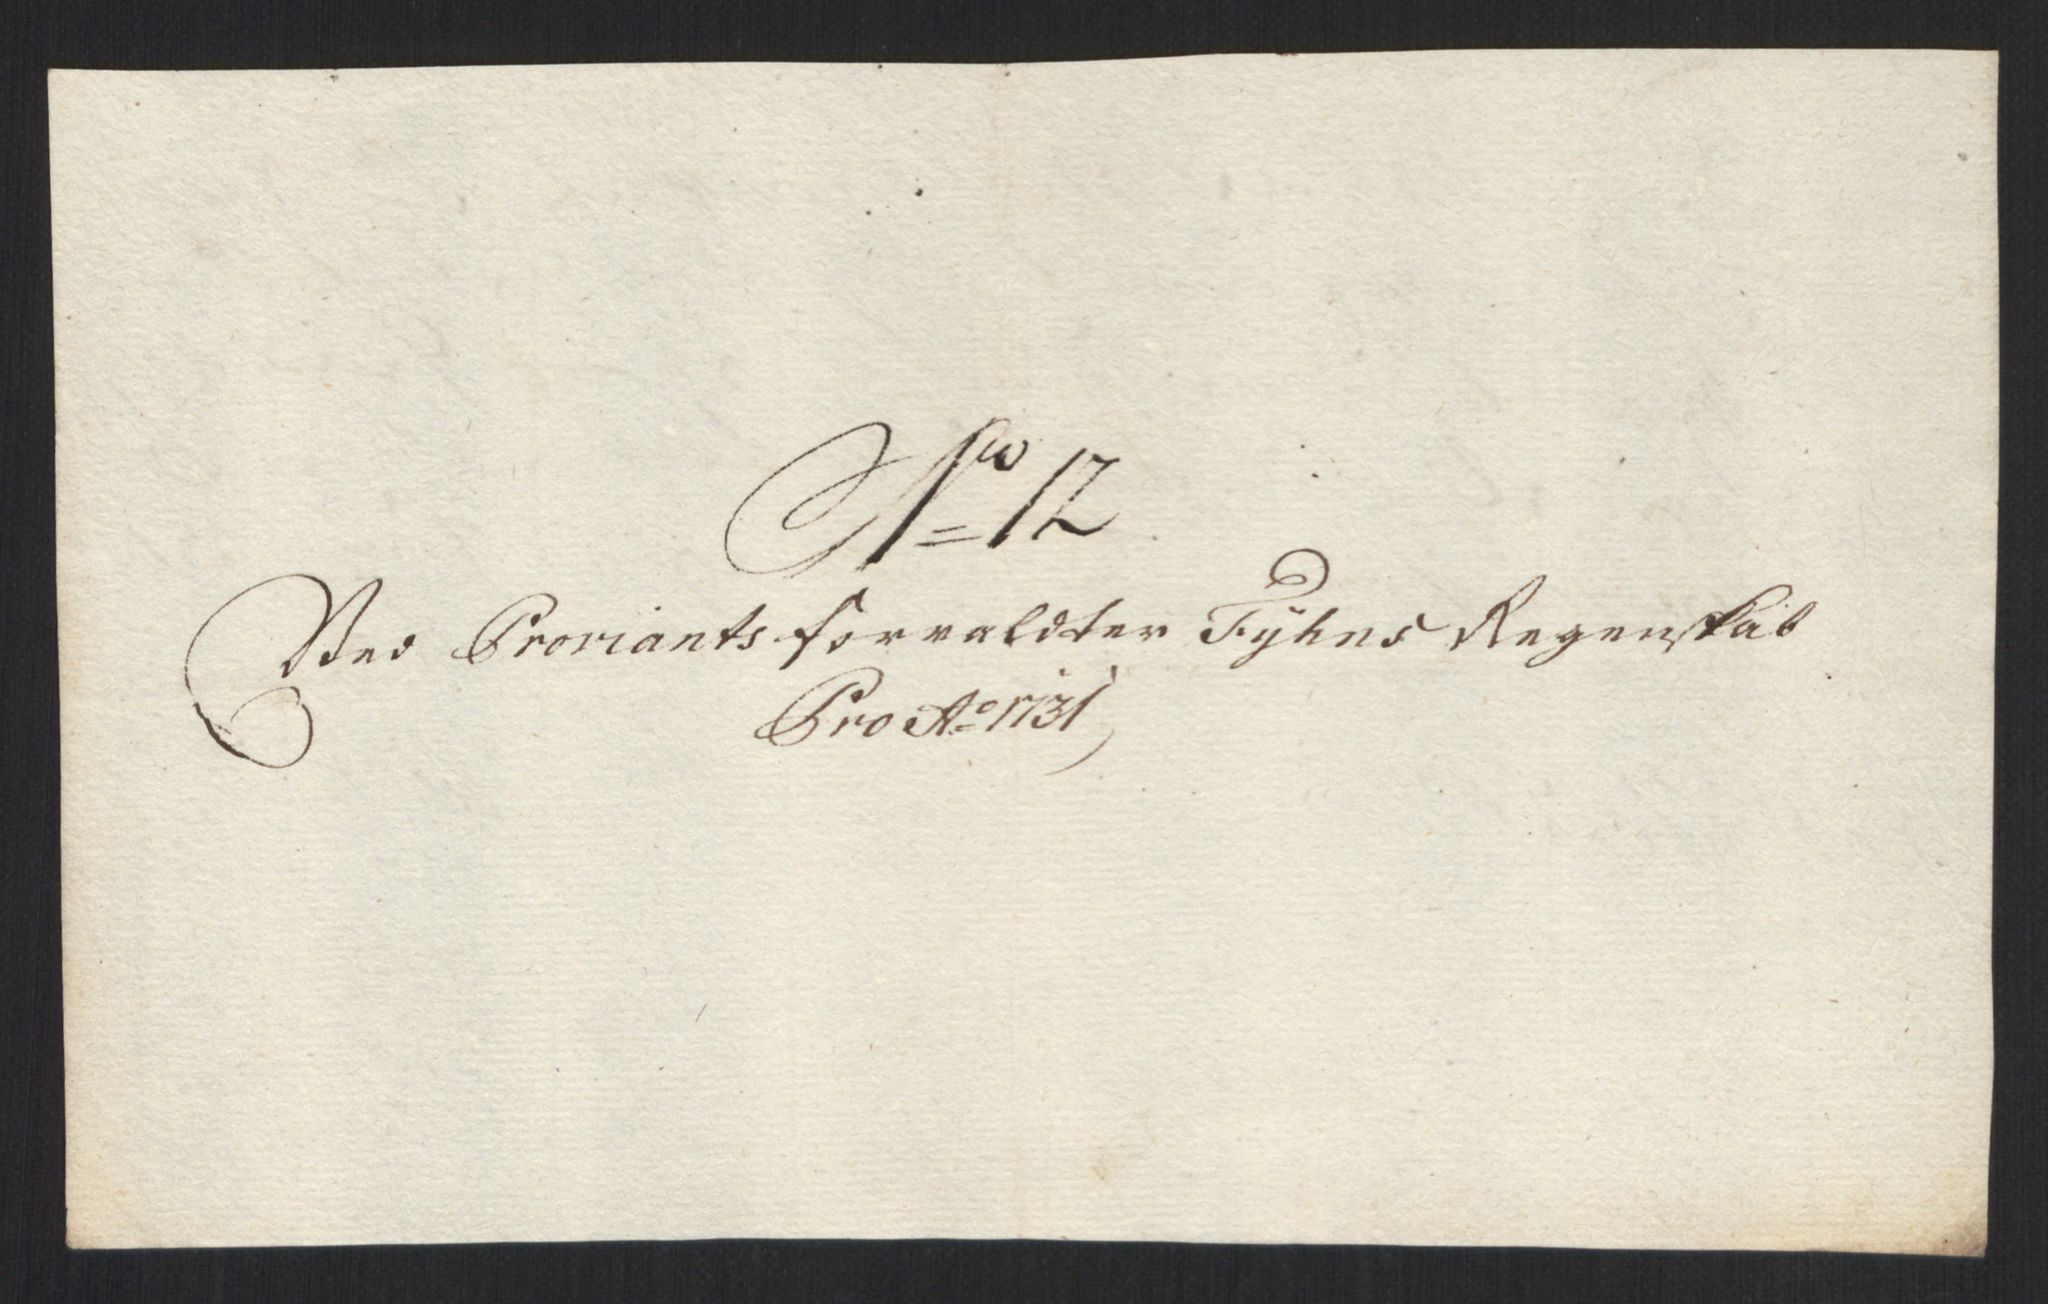 No 12
Ved Proviants forvaldter Tyhnes Regenskab
Pro Ao 1731